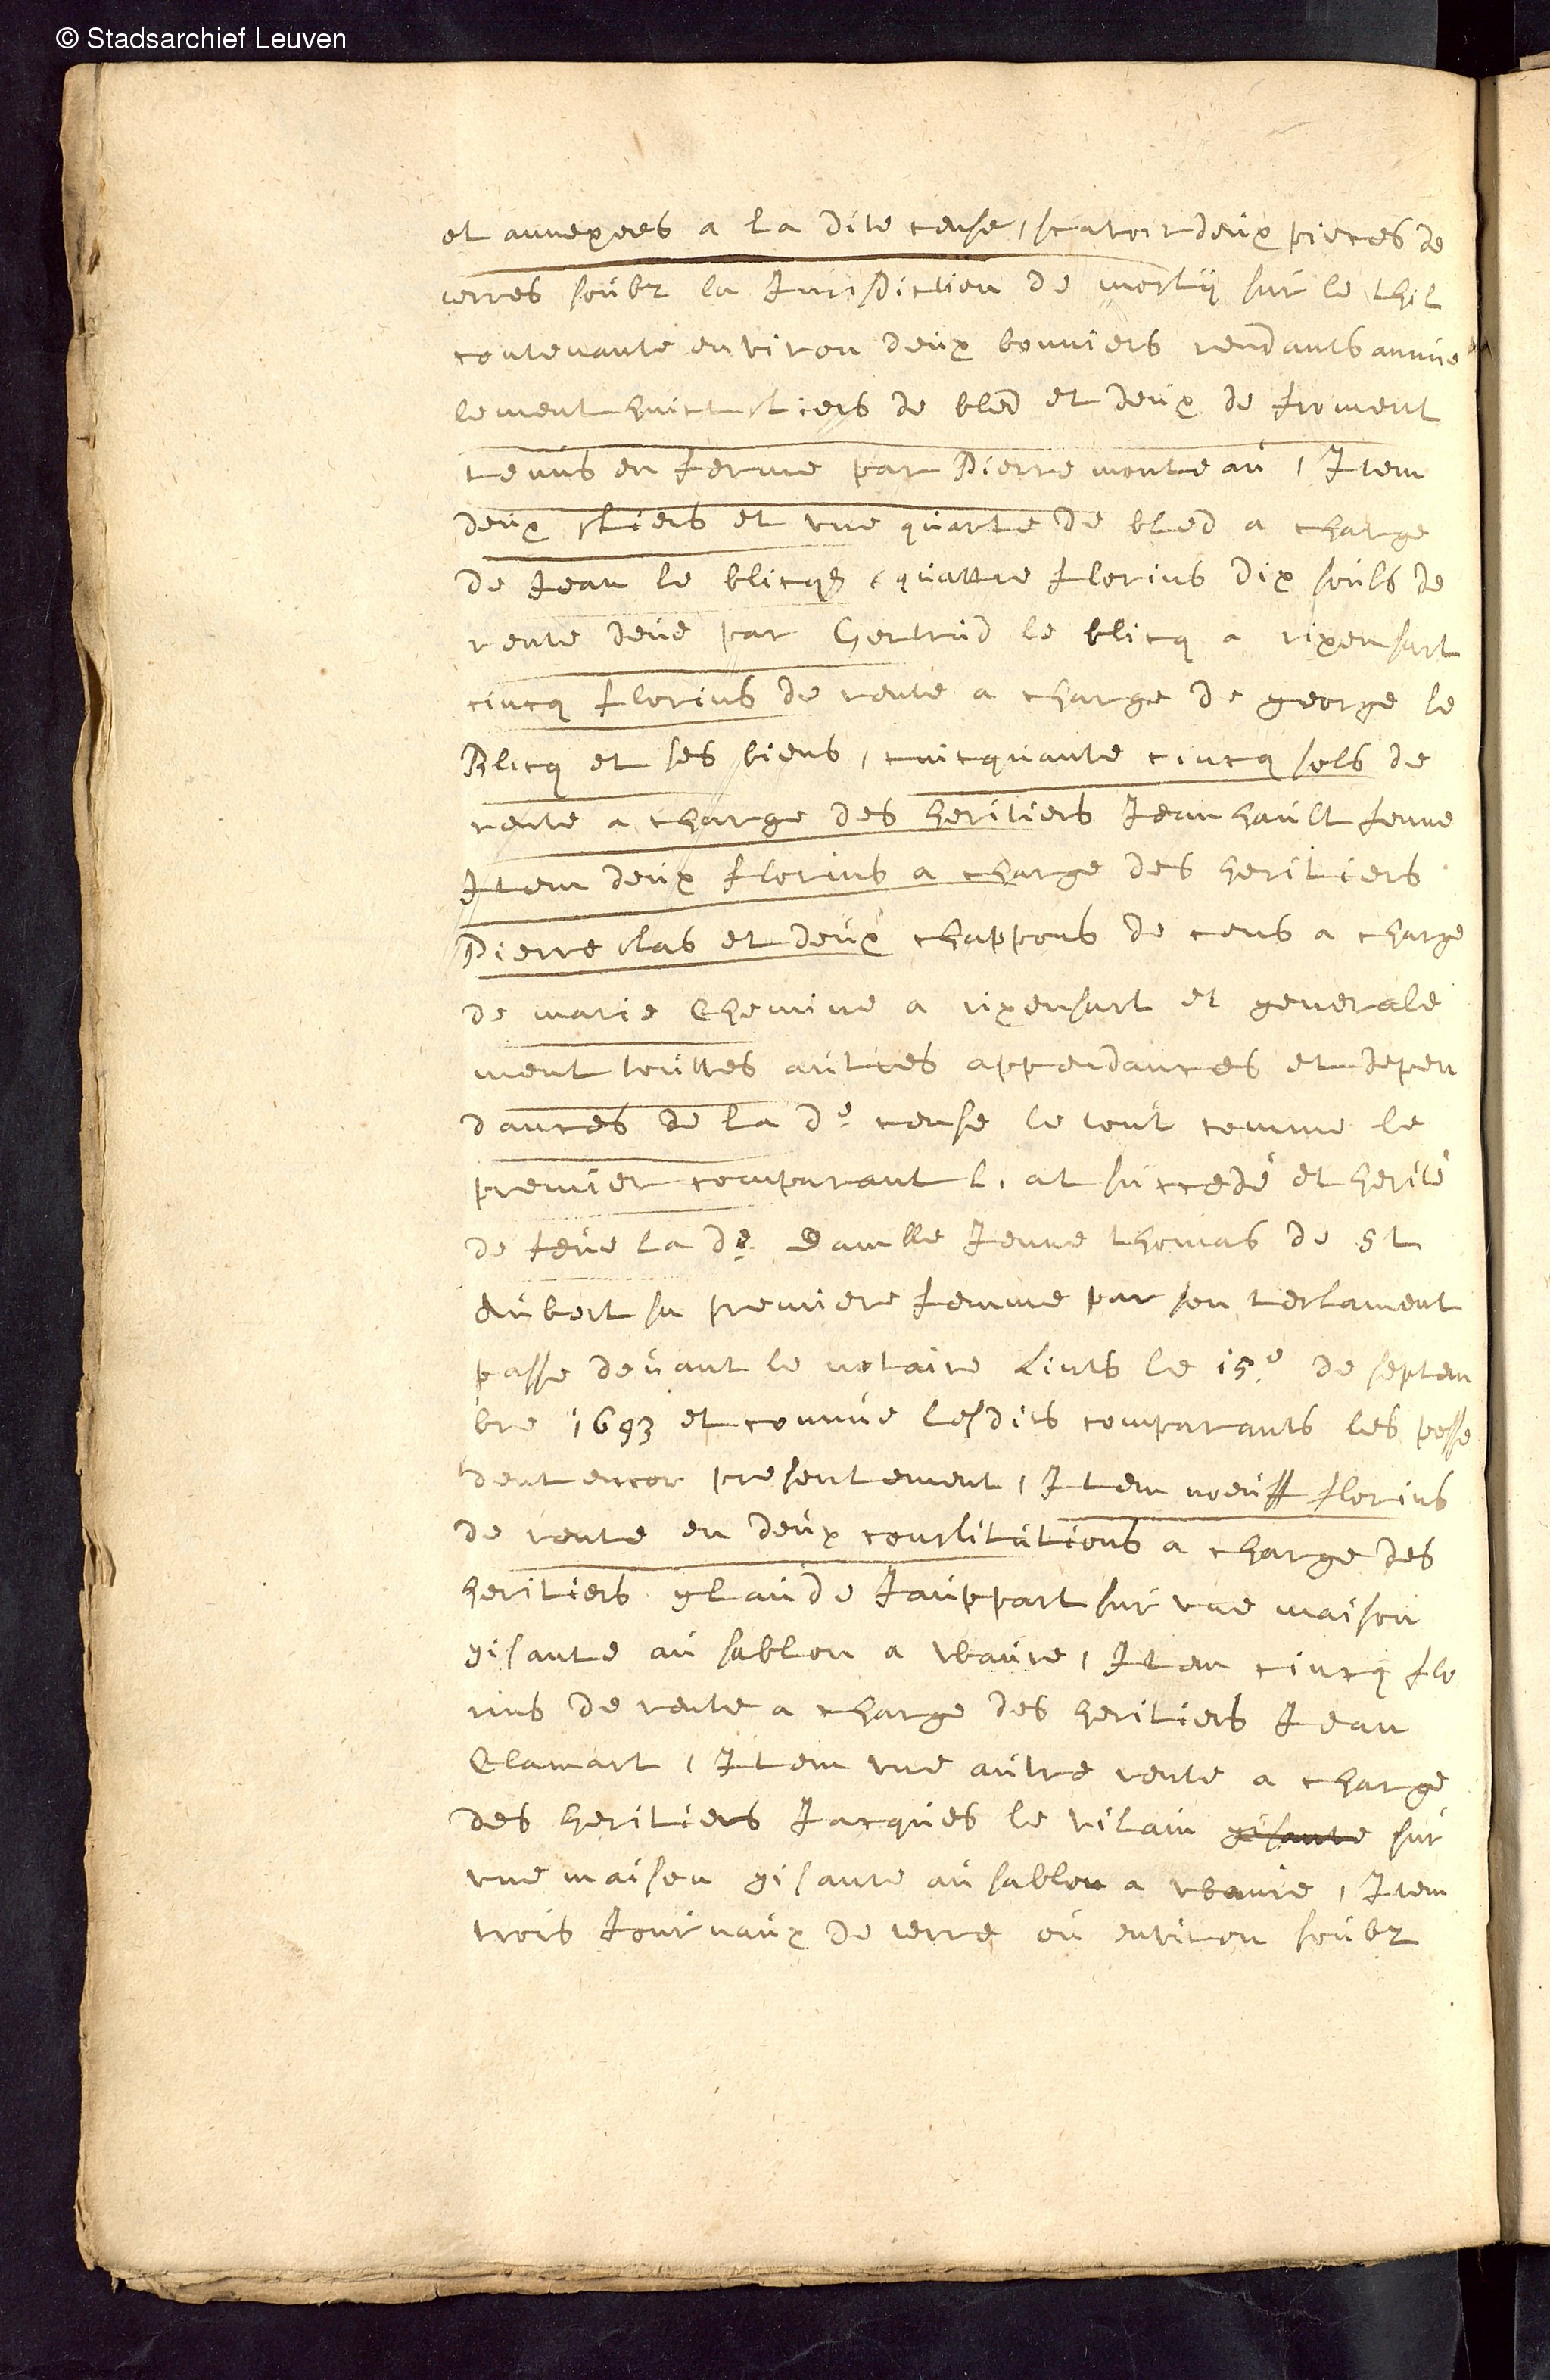 © Stadsarchief Leuven
et annexees a la dite cense, scavoir deux pieces de
terres soubz la Jurisdiction de mostij sur le thil
contenante environ deux bonniers rendants annue
lement huict stiers de bled et deux de froment
tenus en ferme par Pierre monteau, Item
deux stiers et une quarte de bled a charge
de Jean le blicq, quattre florins dix souls de
rente deue par Gertrud le blicq a rixensart
cincq florins de rente a charge de george le
Blicq et ses biens, cuicquante cincq sols de
rente a charge des heritiers Jean hault fenne
Item deux florins a charge des heritiers
Pierre stas et deux chappons de cens a charge
de marie Chemine a rixensart et generale
ment touttes autres appendances et depen
dances de la de. cense le tout comme le
premier comparant l. at succedé et herité
de feue la de. Damlle Jenne thomas de St
Aubert sa premiere femme par son testament
passe devant le notaire Lints le 15.e de septem
bre 1693 et comme lesdits comparants les posse
dent encor presentement, Item noeuff florins
de rente en deux constitutions a charge des
heritiers glaude Jauppart sur une maison
gisante au sablon a wavre, Item cincq flo
rins de rente a charge des heritiers Jean
Clamart, Item une autre rente a charge
des heritiers Jacques le vilain gisante sur
une maison gisante au sablon a wavre, Item
trois Journaux de terre ou environ soubz